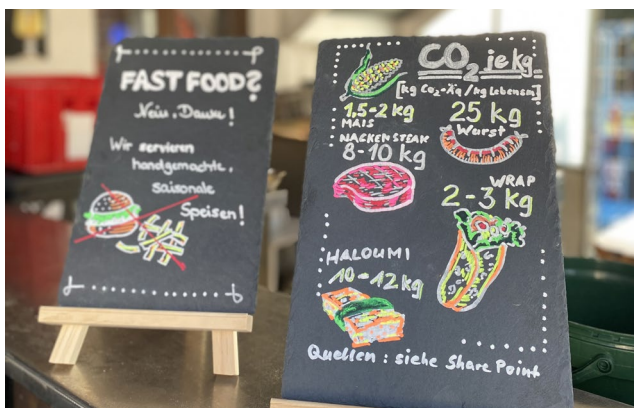 FAST FOOD?
Nein, Danke!
Wir servieren
handgemachte,
saisonale
Speisen!
CO2 je kg
[kg CO2-Äq/kg Lebensm]
1,5-2 kg
MAIS
25 kg
Wurst
NACKENSTEAK
8-10 kg
WRAP
2-3 kg
HALOUMI
10-12 kg
Quellen: siehe Share Point